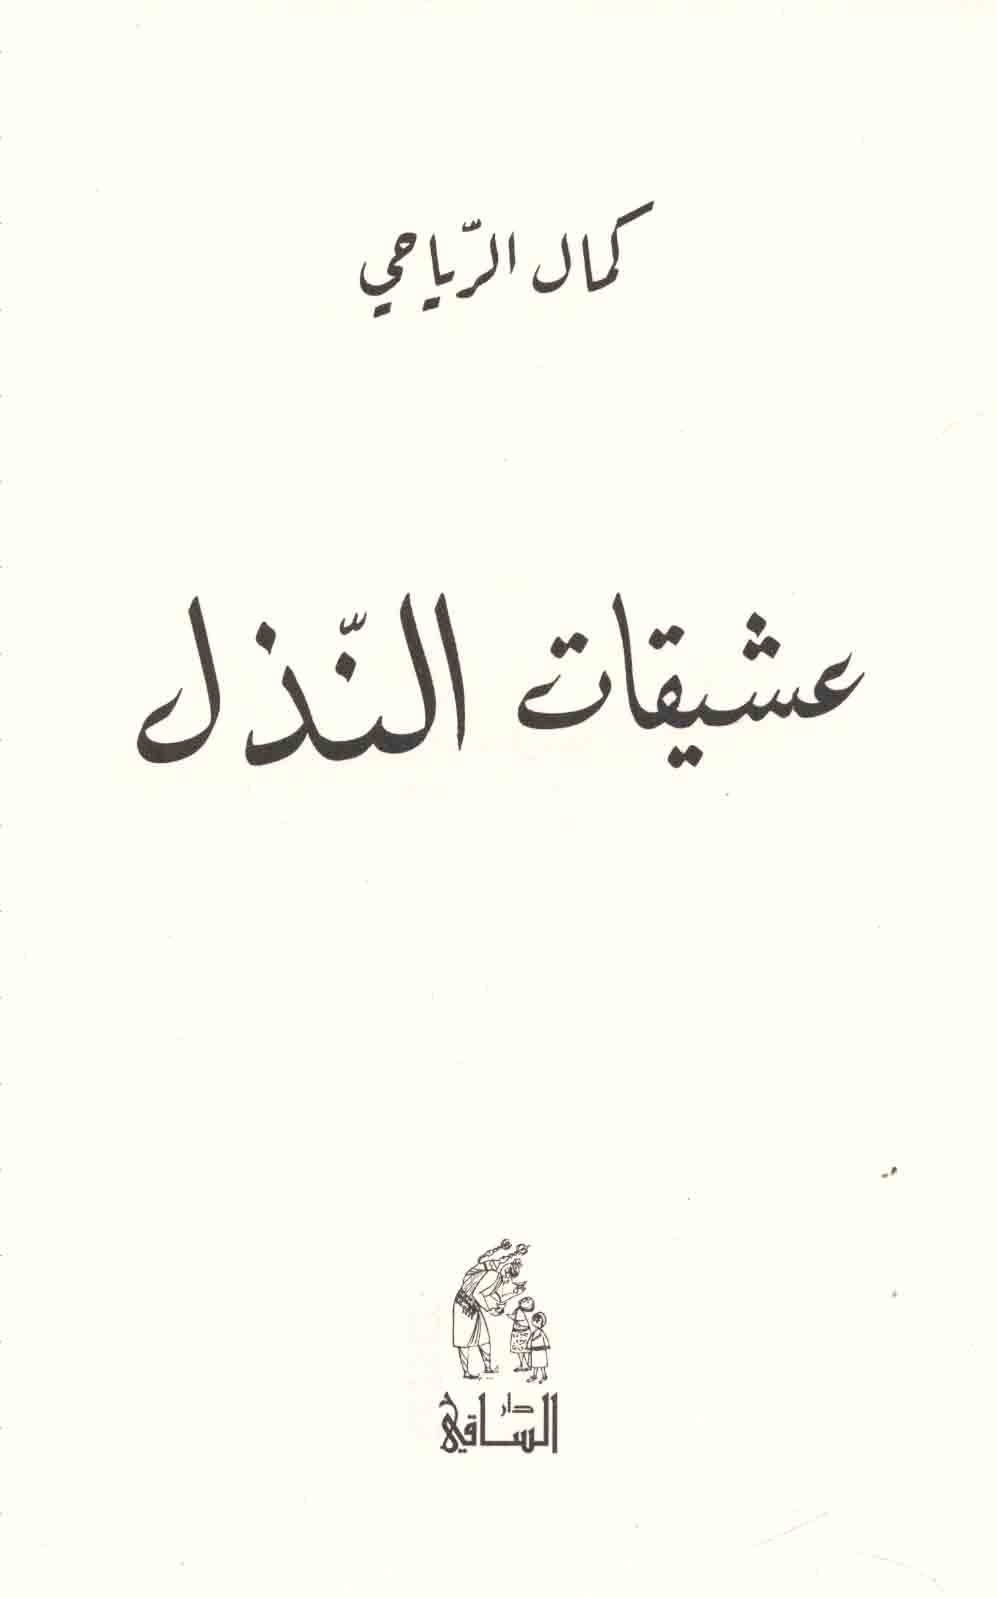 كمال الرّياحي
عشيقات النّذل
دار
الساقي